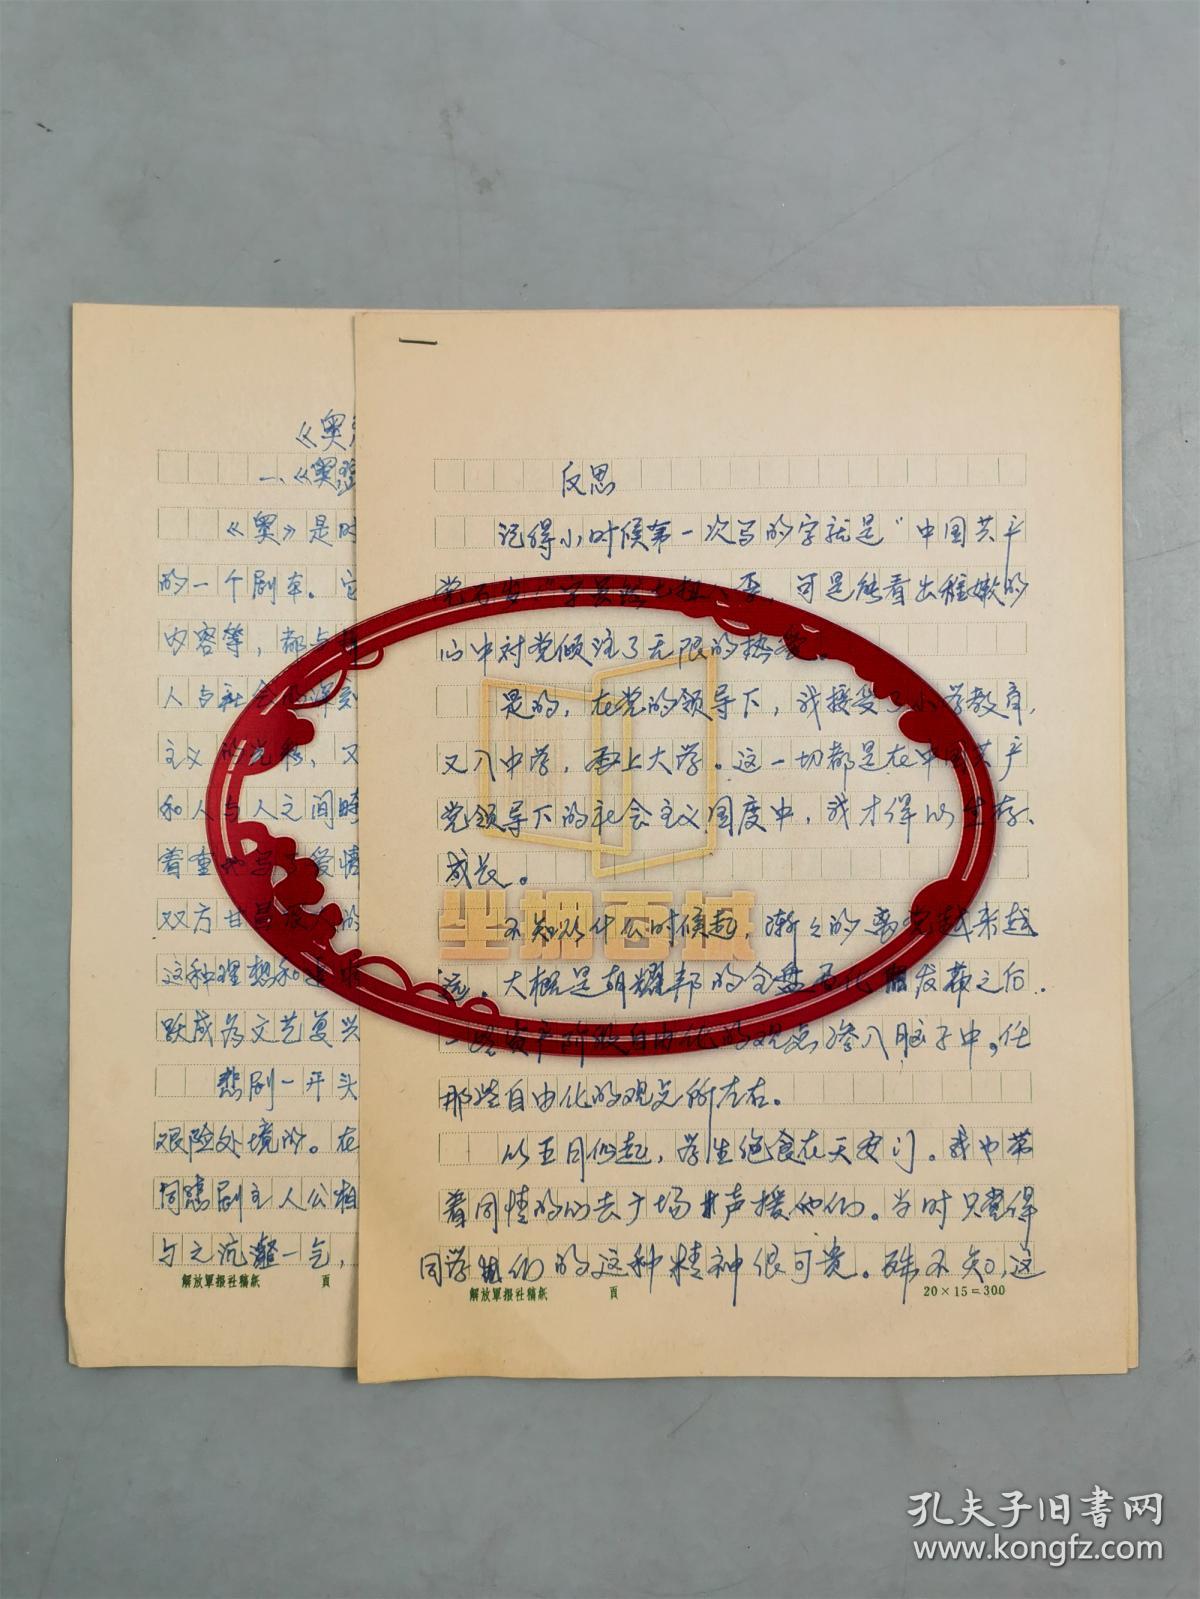 《奥
一、《奥
《奥》是时
的一个剧本。它
内容等，都与
人与社会的深刻
主义的光彩、又
和人与人之间
着重地写了爱情
双方甘
这种理想和追求
跃成为文艺复兴
悲剧一开头
艰险处境的。在
同悲剧主人公相
与之沆瀣一气，
解放軍报社稿紙 頁
反思
记得小时候第一次写的字就是“中国共产
党万岁”字虽然七扭八歪，可是能看出稚嫩的
心中对党倾注了无限的热爱。
是的，在党的领导下，我接受了小学教育，
又入中学，再上大学。这一切都是在中国共产
党领导下的社会主义国度中，我才得以生存、
成长。
不知从什么时候起，渐々的离党越来越
远。大概是胡耀邦的全盘西化 发葬之后.
一些资产阶级自由化的观点渗入脑子中，任
那些自由化的观点所左右。
从五月份起，学生绝食在天安门。我也带
着同情的心去广场 声援他们。当时只觉得
同学 们的这种精神很可贵。殊不知，这
解放軍报社稿紙 頁 20×15=300
坐拥百城
孔夫子旧书网
www.kongfz.com